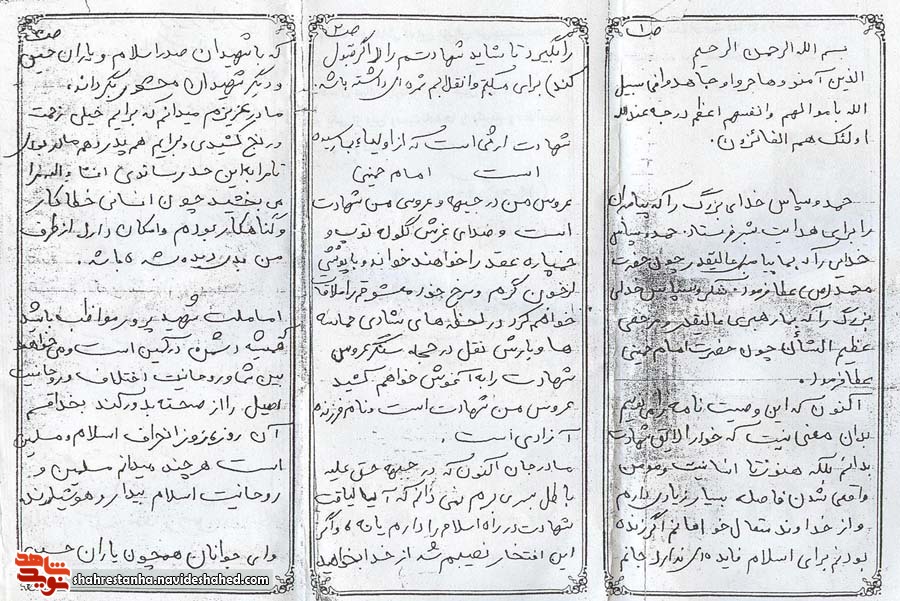 ص ۱
بسم الله الرحمن الرحیم
الذین آمنو وهاجروا و جاهدوا فی سبیل
الله باموالهم وانفسهم اعظم درجه عندالله
اولئک هم الفائزون.
حمد و سپاس خدای بزرگ را که پیامبران
را برای هدایت بشر فرستاد. حمد و سپاس
خدایی را که بما پیامبری عالیقدر چون حضرت
محمد (ص) عطا فرمود. شکر و سپاس خدای
بزرگ را که بما رهبری عالیقدر و مرجعی
عظیم الشأن چون حضرت امام خمینی
عطا فرمود.
اکنون که این وصیت نامه را می نویسم
بدان معنی نیست که خود را لایق شهادت
بدانم بلکه هنوز تا انسانیت و مومن
واقعی شدن فاصله بسیار زیادی دارم
و از خداوند متعال خواهانم اگر زنده
بودنم برای اسلام فایده ای ندارد جانم
ص ۲
را بگیرد تا شاید شهادتم را (اگر قبول
کند) برای مملکتم و انقلابم ثمره ای داشته باشد.
شهادت ارثی است که از اولیاء بما رسیده
است امام خمینی
عروس من در جبهه و عروسی من شهادت
است و صدای غرش گلوله توپ و
خمپاره عقد را خواهند خواند و با پوششی
از خون گرم و سرخ خود معشوقم را ملاقات
خواهم کرد در لحظه های شادی
ها و بارش نقل در حجله سنگر عروس
شهادت را به آغوش خواهم کشید
عروس من شهادت است و نام فرزندم
آزادی است.
مادر جان اکنون که در جبهه حق علیه
باطل بسر می برم نمی دانم که آیا لیاقت
شهادت در راه اسلام را دارم یا نه و اگر
این افتخار نصیبم شد از خدا بخواهید
ص ۳
که با شهیدان صدر اسلام و یاران حسین
و دیگر شهیدان محشور بگرداند.
مادر عزیزم میدانم که برایم خیلی زحمت
و رنج کشیدی و برایم هم پدر و هم مادر بودی
تا مرا به این حد رساندی انشاءالله مرا
می بخشید چون انسانی خطاکار
و گناهکار بودم و امکان دارد از طرف
من بدی دیده شده باشد.
اما ملت شهید پرور مواظب باشید
همیشه دشمن در کمین است و می خواهد
بین شما و روحانیت اختلاف و روحانیت
اصیل را از صحنه بدور کند بخدا قسم
آن روز، روز انحراف اسلام و مسلمین
است هر چند میدانم مسلمین و
روحانیت اسلام بیدار و هوشیارند
ولی جوانان همچون یاران حسین
شاهد
نوید
shahrestanha.navideshahed.com